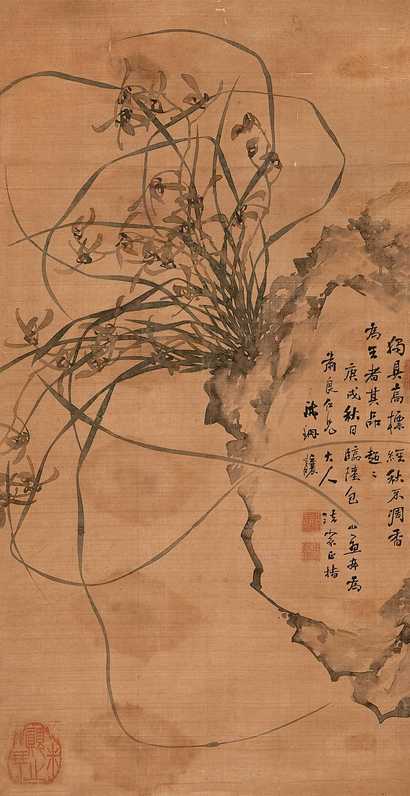 獨具高標經秋不凋香
為王者其品超〻
庚戌秋日臨陸包山畫并為
肅良仁兄大人法家正楷